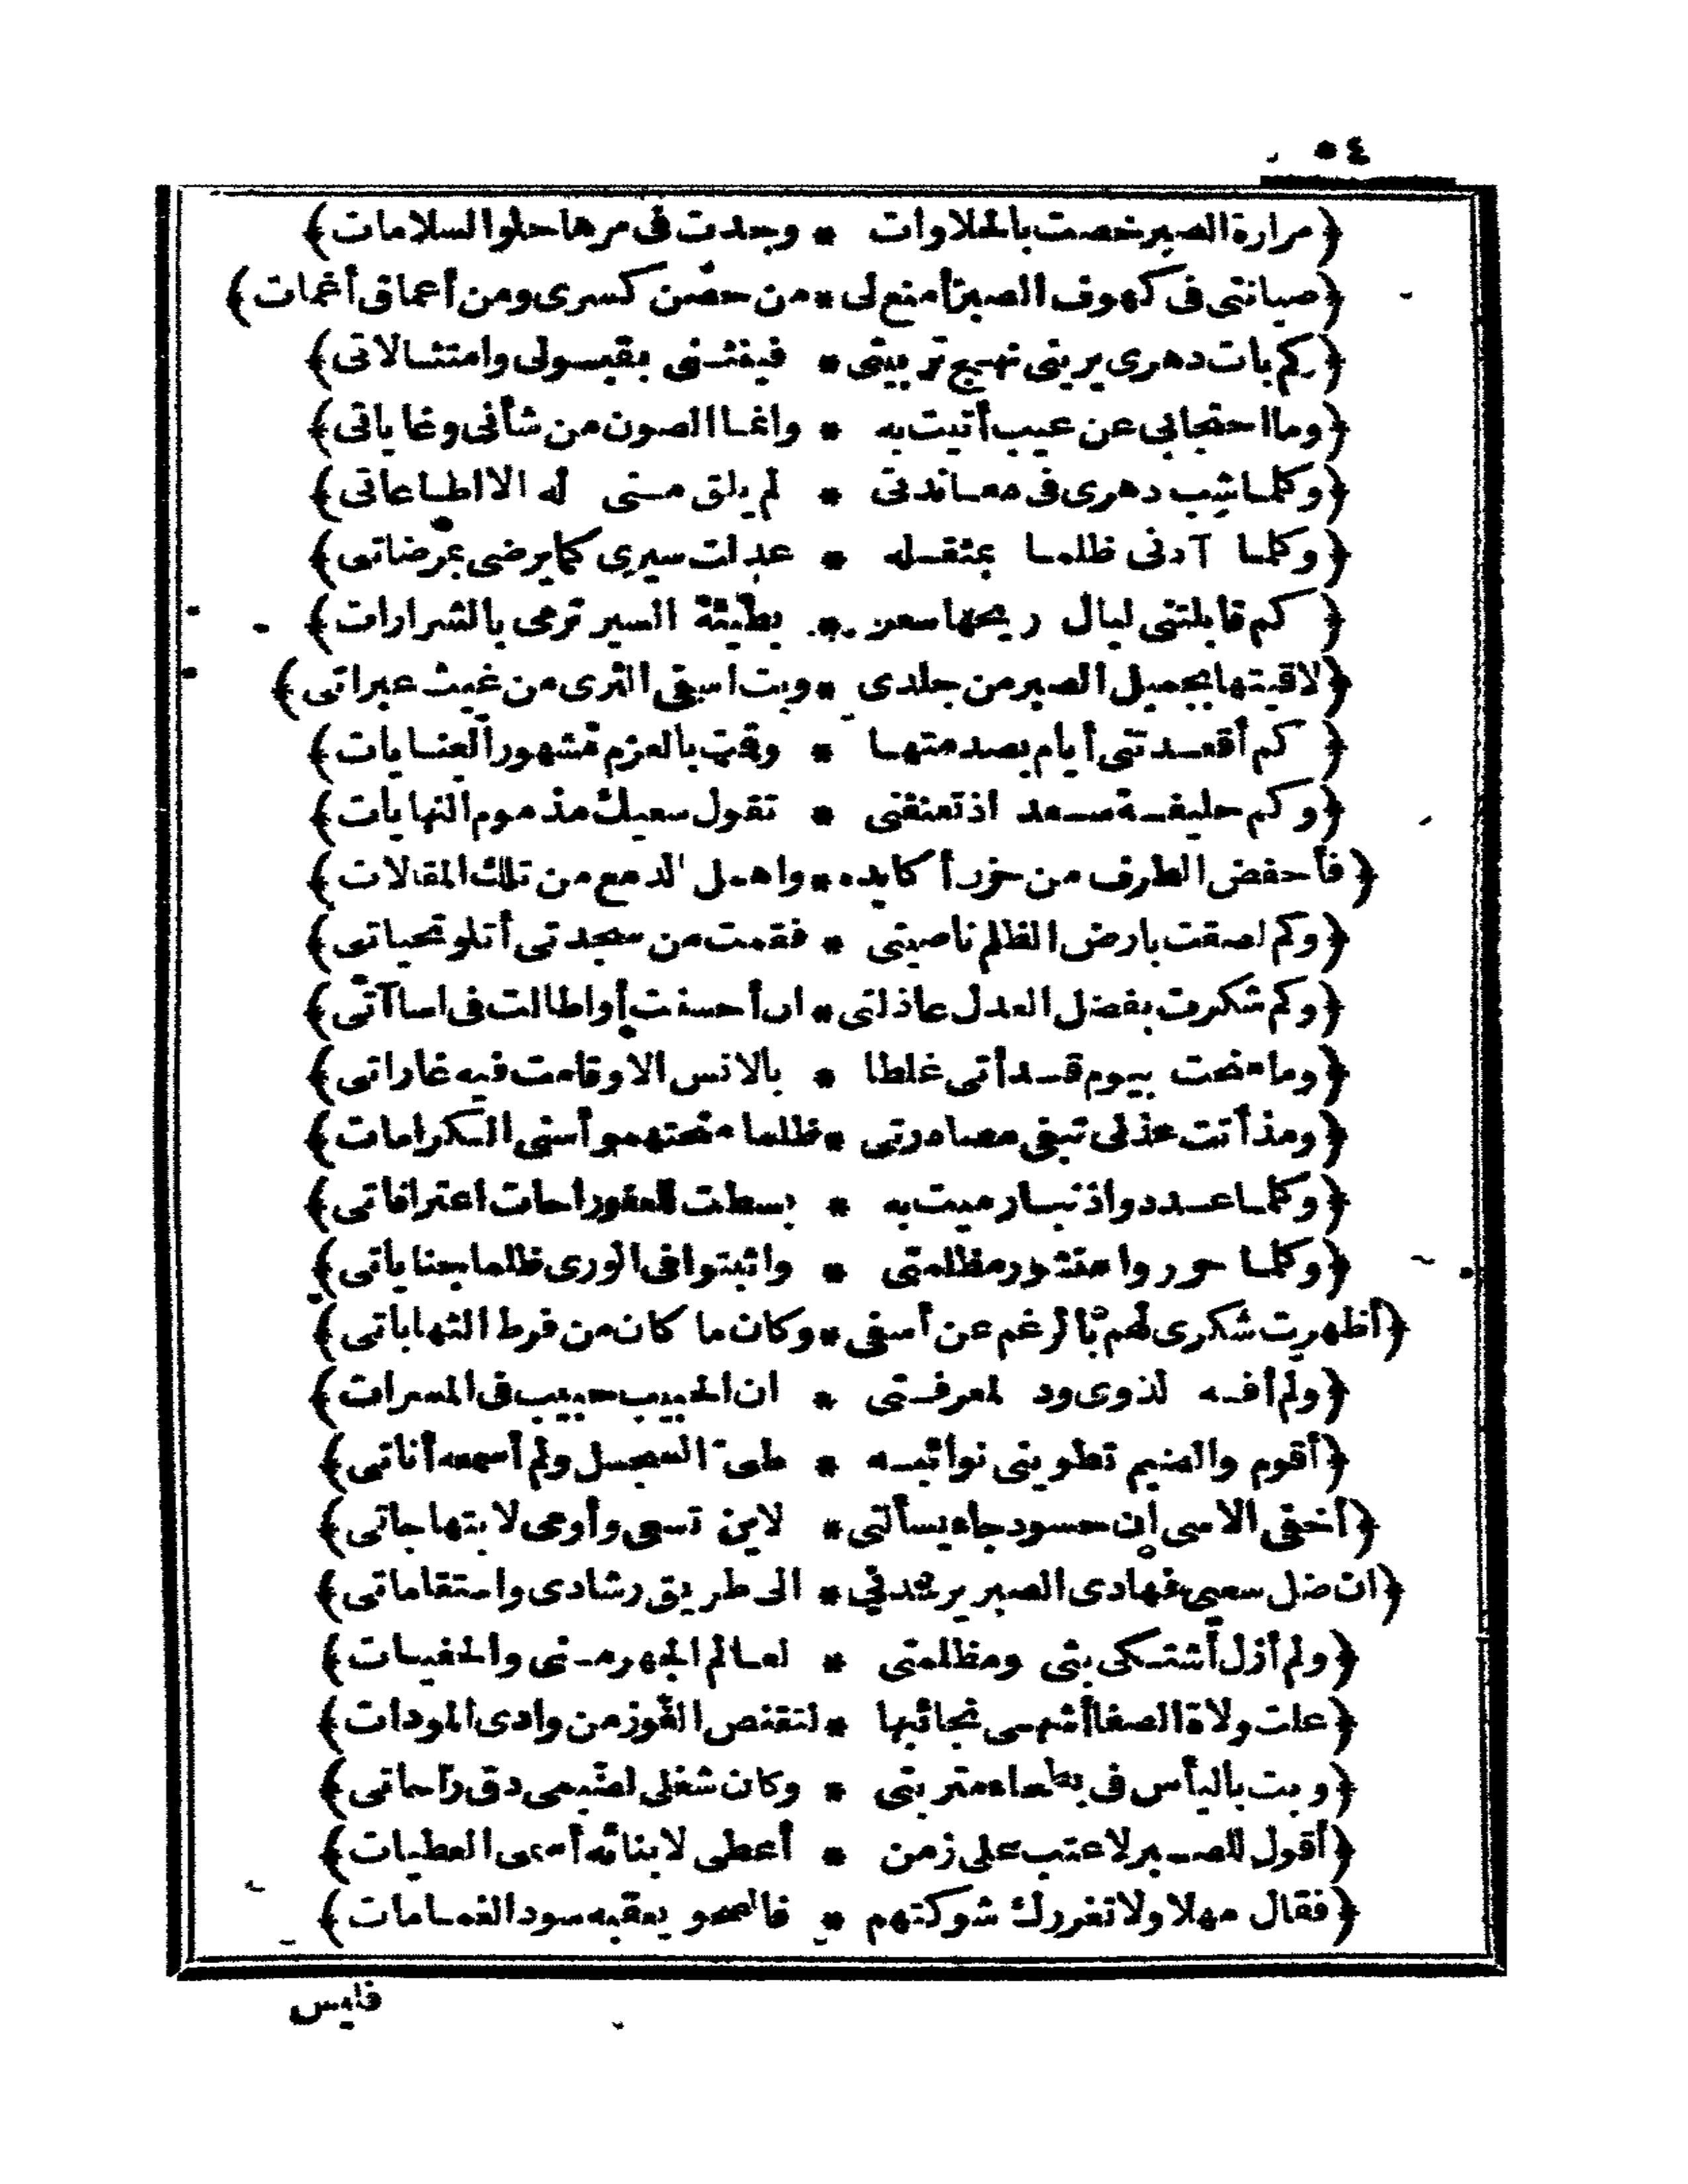 ٥٤
﴿مرارة الصبر خصت بالحلاوات * وجدت فى مرها حلو السلامات﴾
﴿صيانتى فى كهوف الصبر أمنع لى * من حصن كسرى ومن أعماق أغمات﴾
﴿كم بات دهرى يرينى نهج تربيتى * فينثنى بقبولى وامتثالاتى﴾
﴿وما احتجابى عن عيب أتيت به * وانما الصون من شأنى وغاياتى﴾
﴿وكلما شب دهرى فى معاندتى * لم يلق منى له الا اطاعاتى﴾
﴿وكلما آدنى ظلما بمثقله * عدلت سيرى كما يرضى بمرضاتى﴾
﴿كم قابلتنى ليال ريحها سعر * بطيئة السير ترمى بالشرارات﴾
﴿لاقيتها بجميل الصبر من جلدى * وبت اسقى الثرى من غيث عبراتى﴾
﴿كم أقعدتنى أيام بصدمتها * وقمت بالعزم مشهور العنايات﴾
﴿وكم حليفة سعد اذ تعنفنى * تقول سعيك مذموم النهايات﴾
﴿فأخفض الطرف من حزن أكابده * واهمل الدمع من تلك المقالات﴾
﴿وكم لصقت بارض الظلم ناصيتى * فقمت من سجدتى أتلو تحياتى﴾
﴿وكم شكرت بفضل العدل عاذلتى * ان أحسنت أو اطالت فى اساآتى﴾
﴿وما منحت بيوم قد أتى غلطا * بالانس الا وقامت فيه غاراتى﴾
﴿ومذ أتت عذلى تبغى مصادرتى * ظلما منحتهمو أسنى الكرامات﴾
﴿وكلما عددوا ذنبا رميت به * بسطت للعفو راحات اعترافاتى﴾
﴿وكلما حرروا منشور مظلمتى * واثبتوا فى الورى ظلما جناياتى﴾
﴿أظهرت شكرى لهم بالرغم عن أسفى * وكان ما كان من فرط التهاباتى﴾
﴿ولم أفه لذوى ود لمعرفتى * ان الحبيب حبيب فى المسرات﴾
﴿أقوم والضيم تطوينى نوائبه * طى السجل ولم أسمعه أناتى﴾
﴿أخفى الاسى ان حسود جاء يسألنى * لاين تسعى وأوعى لابتهاجاتى﴾
﴿ان ضل سعيى فهادى الصبر يرشدنى * الى طريق رشادى واستقاماتى﴾
﴿ولم أزل أشتكى بثى ومظلمتى * لعالم الجهر منى والخفيات﴾
﴿علت ولاة الصفا أشهى نجائبها * لتقنص الفوز من وادى المودات﴾
﴿وبت باليأس فى بطحاء متربتى * وكان شغلى لضيمى دق راحاتى﴾
﴿أقول للصبر لا عتب على زمن * أعطى لابنائه أسمى العطيات﴾
﴿فقال مهلا ولا تغررك شوكتهم * فالصحو يعقبه سود الغمامات﴾
فليس